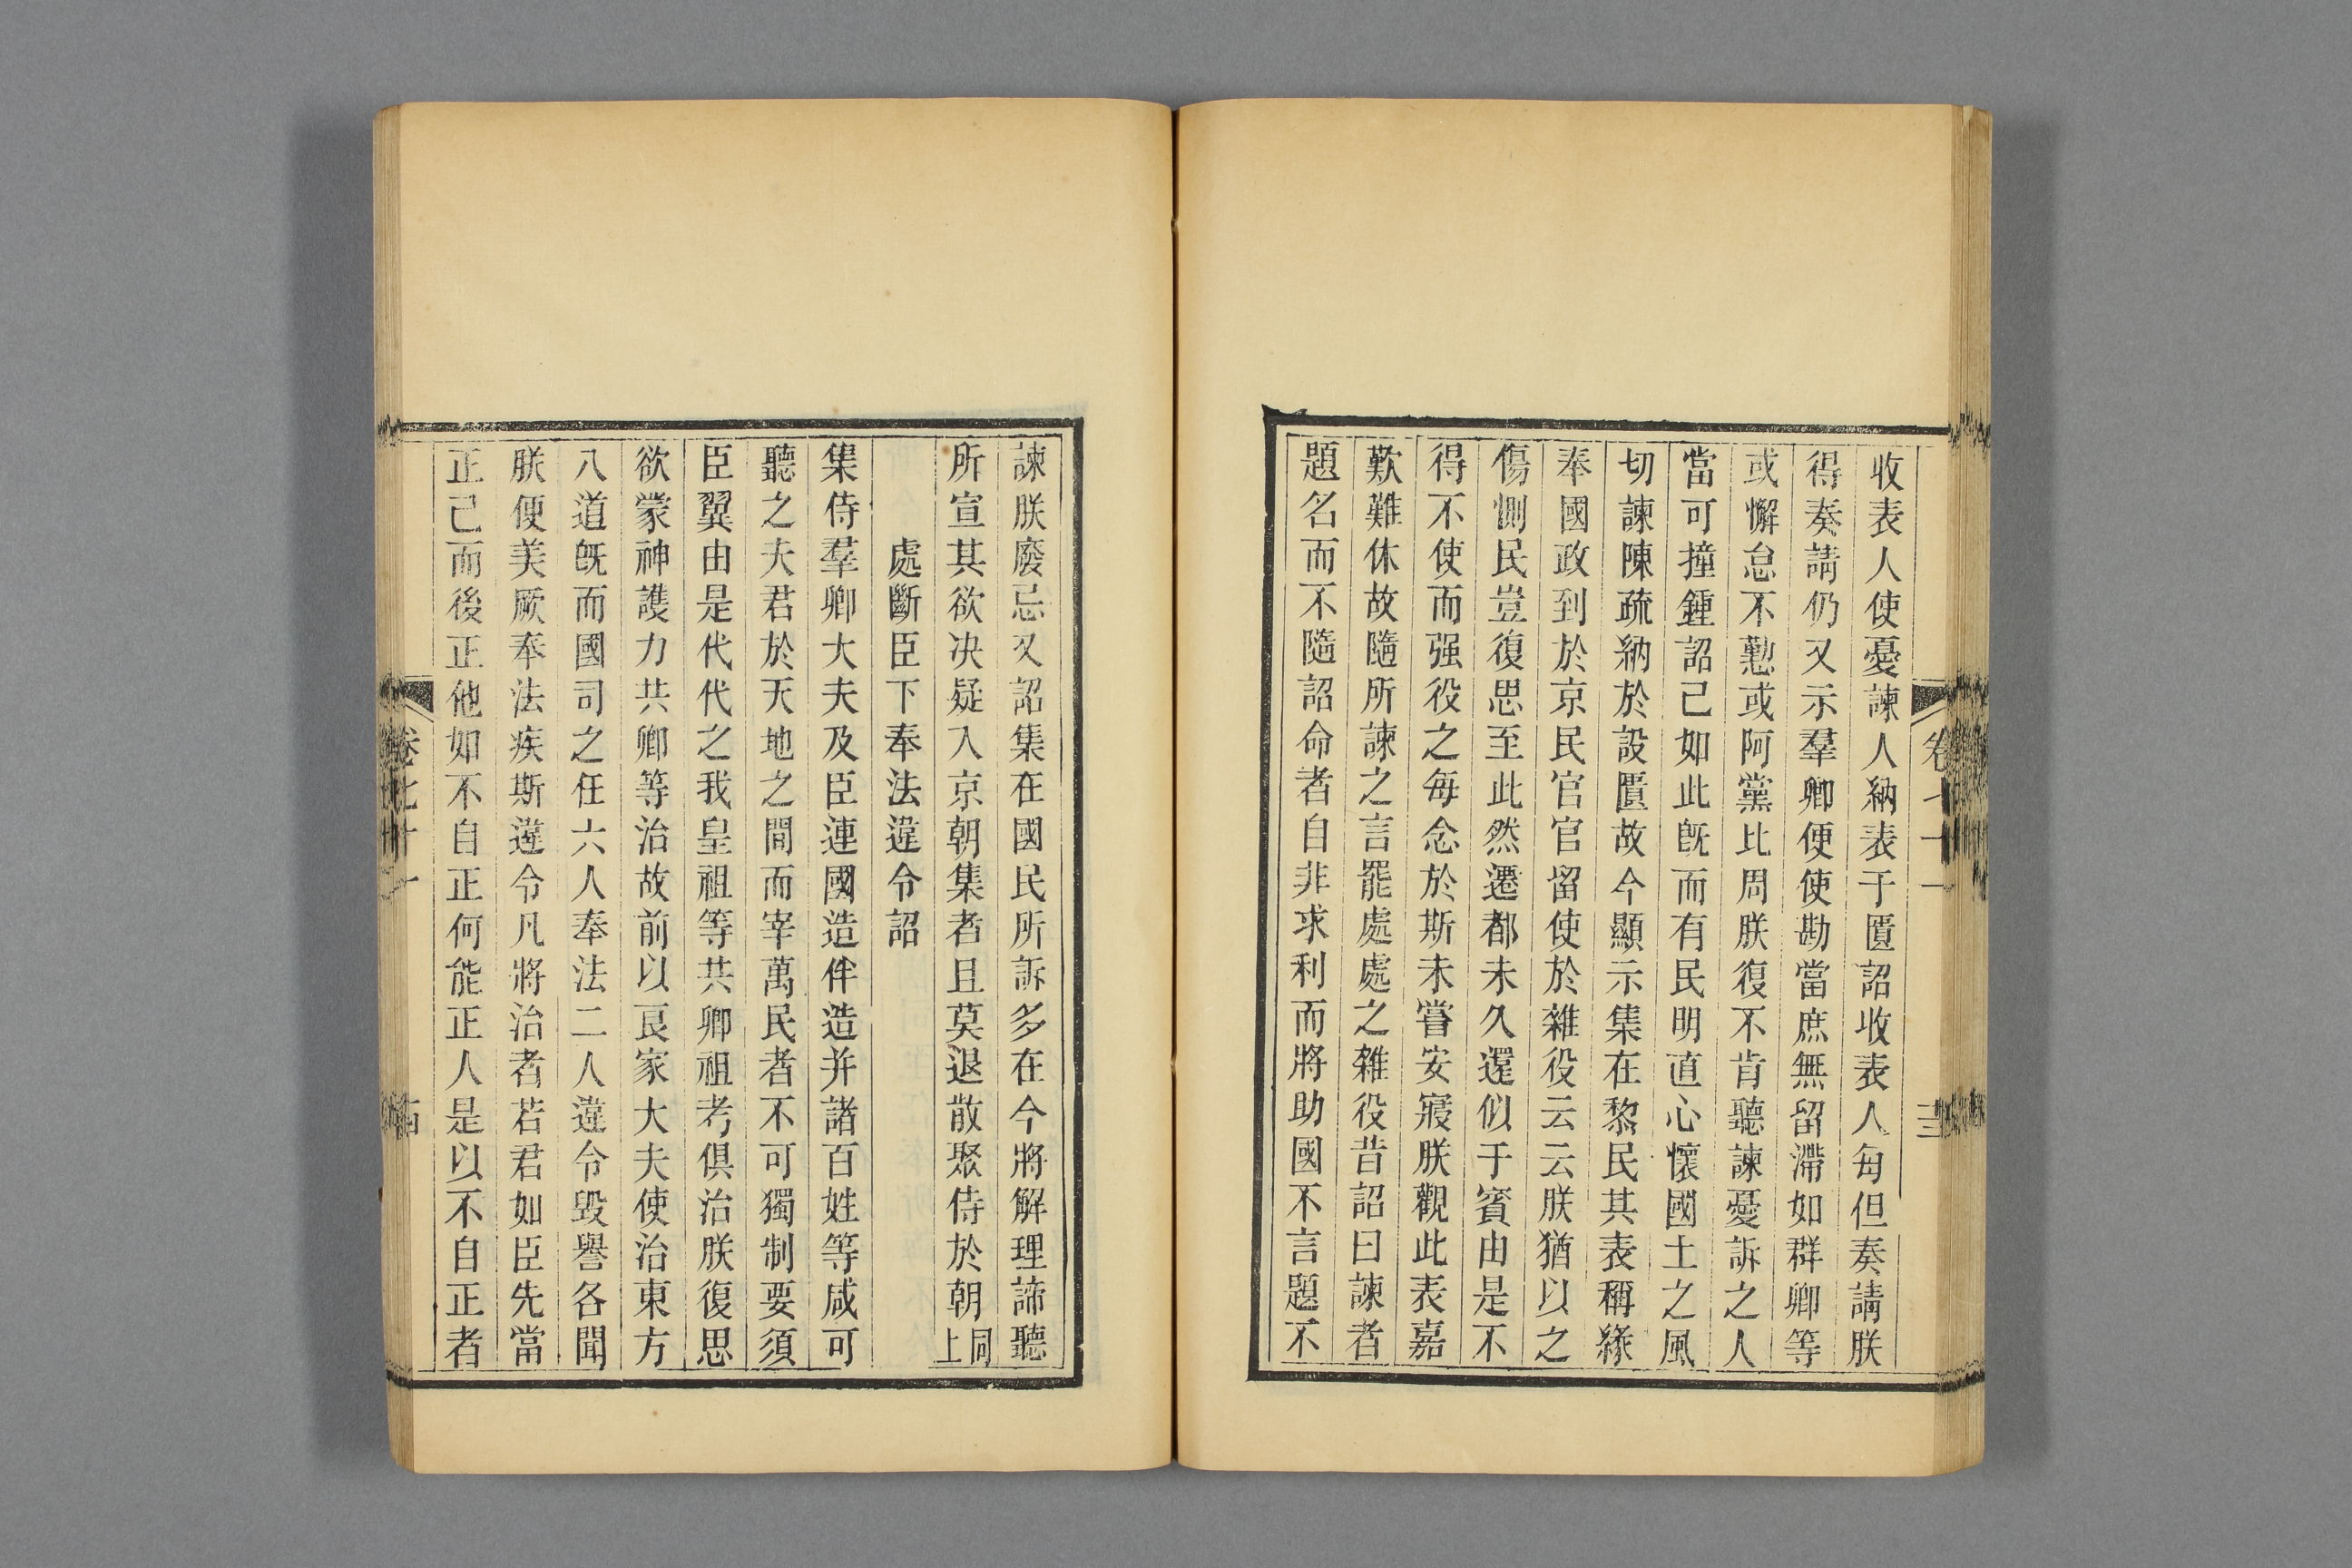 收表人使憂諫人納表于匱詔收表人每但奏請朕
得奏請仍又示羣卿便使勘當庶無留滯如群卿等
或懈怠不懃或阿黨比周朕復不肯聽諫憂訴之人
當可撞鍾詔己如此旣而有民明直心懷國土之風
切諫陳疏納於設匱故今顯示集在黎民其表稱緣
奉國政到於京民官官留使於雜役云云朕猶以之
傷惻民豈復思至此然遷都未久還似于賓由是不
得不使而强役之每念於斯未嘗安寢朕觀此表嘉
歎難休故隨所諫之言罷處處之雜役昔詔曰諫者
題名而不隨詔命者自非求利而將助國不言題不
諫朕廢忌又詔集在國民所訴多在今將解理諦聽
所宣其欲决疑入京朝集者且莫退散聚侍於朝同上
處斷臣下奉法違令詔
集侍羣卿大夫及臣連國造伴造并諸百姓等咸可
聽之夫君於天地之間而宰萬民者不可獨制要須
臣翼由是代代之我皇祖等共卿祖考俱治朕復思
欲蒙神護力共卿等治故前以良家大夫使治東方
八道旣而國司之任六人奉法二人違令毀譽各聞
朕便美厥奉法疾斯違令凡將治者若君如臣先當
正己而後正他如不自正何能正人是以不自正者